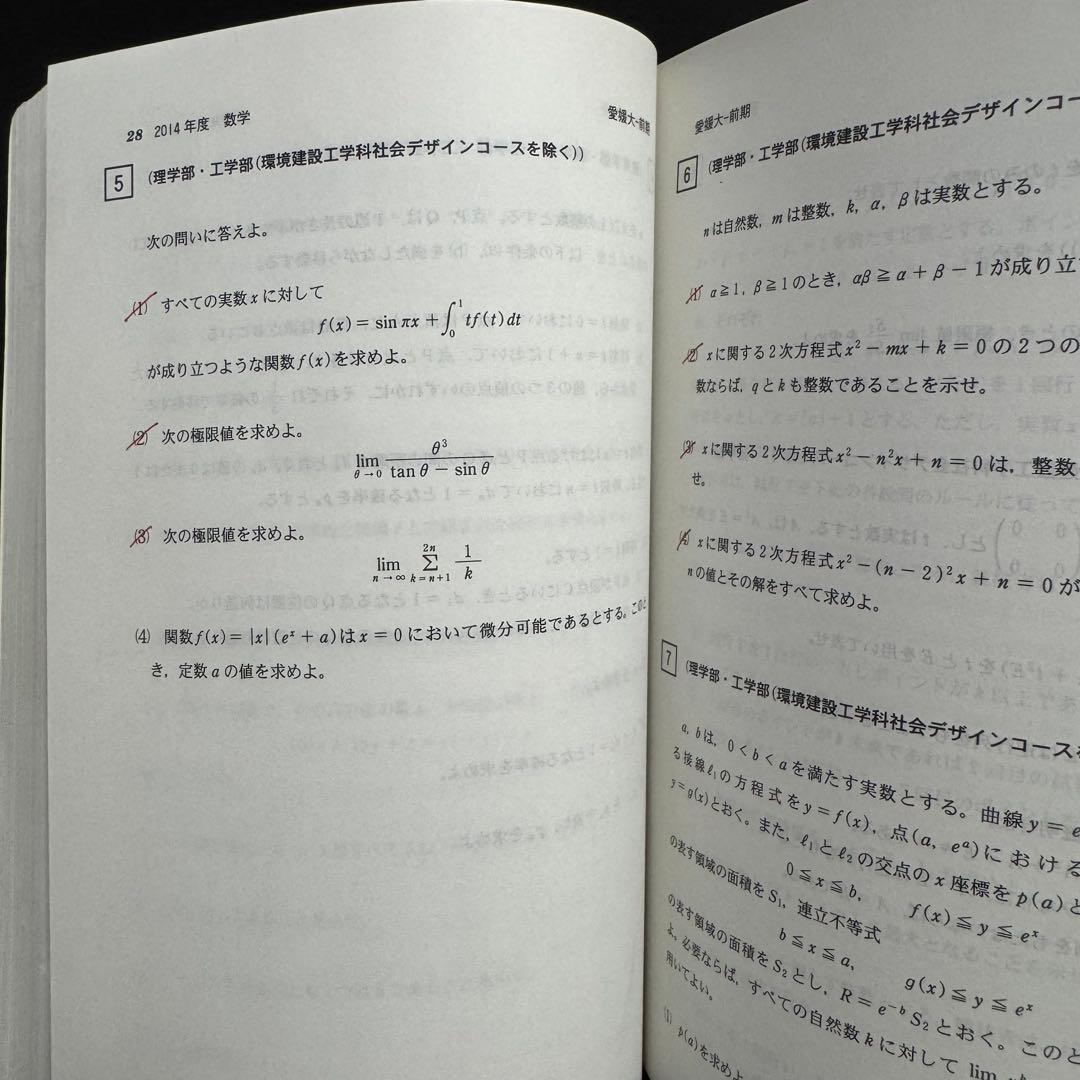 28 2014年度 数学
愛媛大-前期
5 (理学部・工学部(環境建設工学科社会デザインコースを除く))
次の問いに答えよ。
(1) すべての実数xに対して
f(x) = sin πx + ∫₀¹ tf(t)dt
が成り立つような関数f(x)を求めよ。
(2) 次の極限値を求めよ。
lim θ→0 θ³ / (tan θ − sin θ)
(3) 次の極限値を求めよ。
lim n→∞ Σ k=n+1 2n 1/k
(4) 関数f(x) = |x|(eˣ + a)はx = 0において微分可能であるとする。このと
き，定数aの値を求めよ。
愛媛大-前期
6 (理学部・工学部(環境建設工学科社会デザインコー
nは自然数，mは整数，k，α，βは実数とする。
(1) α≧1，β≧1のとき，αβ≧α＋β−1が成り立
(2) xに関する2次方程式x²−mx＋k＝0の2つの
数ならば，qとkも整数であることを示せ。
(3) xに関する2次方程式x²−n²x＋n＝0は，整数
せ。
(4) xに関する2次方程式x²−(n−2)²x＋n＝0が
nの値とその解をすべて求めよ。
7 (理学部・工学部(環境建設工学科社会デザインコースを
a，bは，0＜b＜aを満たす実数とする。曲線y＝e
る接線ℓ₁の方程式をy＝f(x)，点(a，eᵃ)における
y＝g(x)とおく。また，ℓ₁とℓ₂の交点のx座標をp(a)と
0≦x≦b，　f(x)≦y≦eˣ
の表す領域の面積をS₁，連立不等式
b≦x≦a，　g(x)≦y≦eˣ
の表す領域の面積をS₂とし，R＝e⁻ᵇS₂とおく。このと
よ。必要ならば，すべての自然数kに対して lim
用いてよい。
(1) p(a)を求めよ